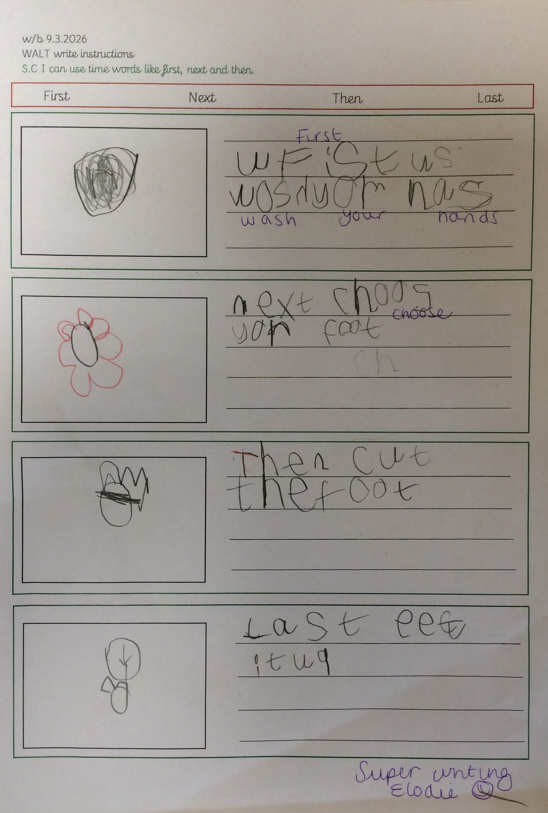 w/b 9.3.2026
WALT write instructions
S.C I can use time words like first, next and then.
First Next Then Last
First
wFiSt us
wosdyor nas
wash your hands
next choos
choose
yor foot
ch
Then cut
the foot
Last eet
it up
Super writing
Elodie